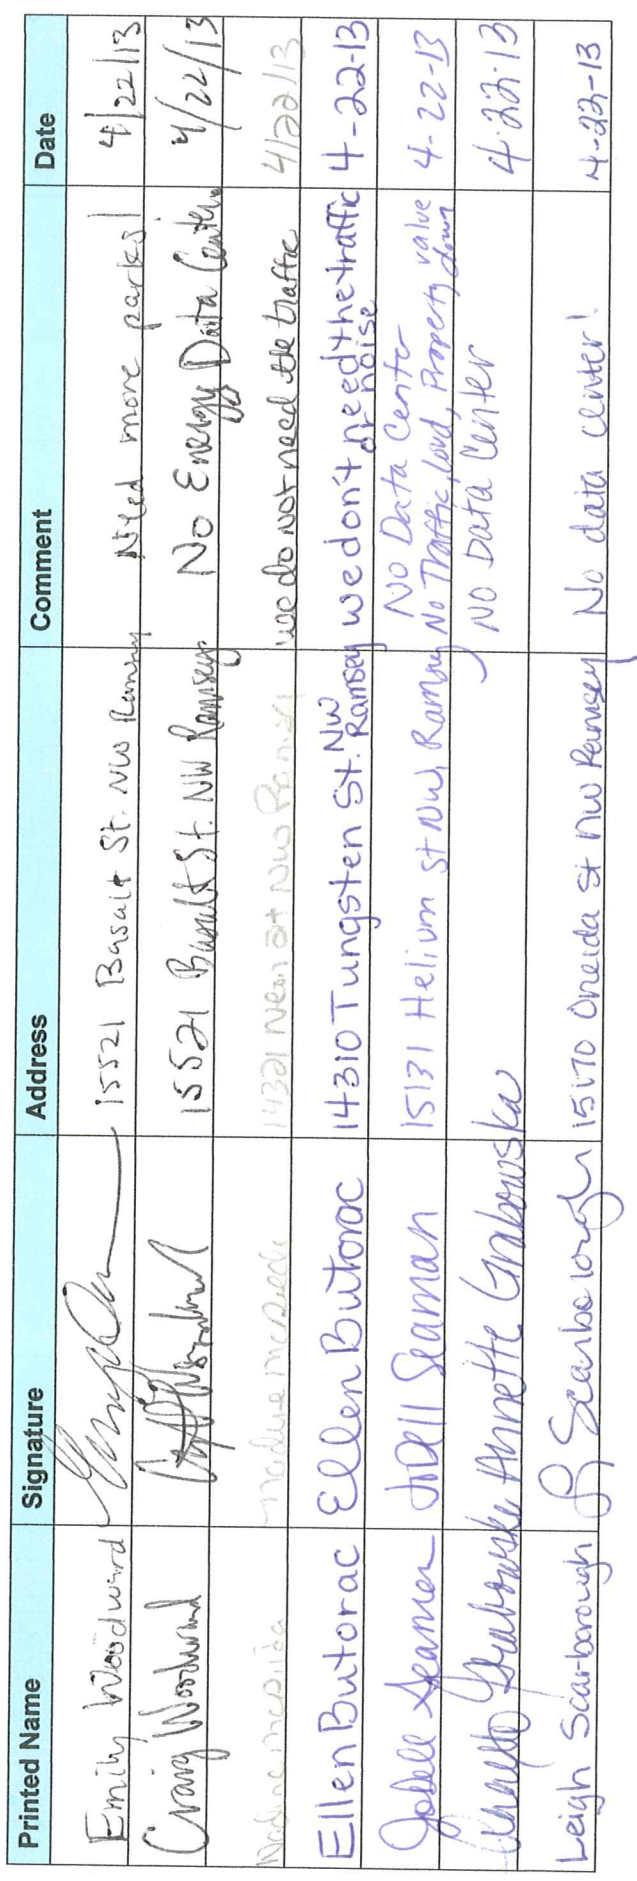 Printed Name Signature Address Comment Date
Emily Woodward 15521 Basalt St. NW Ramsey Need more parks! 4/22/13
Craig Woodward 15521 Basalt St. NW Ramsey No Energy Data Center 4/22/13
Nadine 14321 Neon St NW we do not need the traffic 4/22/13
Ellen Butorac Ellen Butorac 14310 Tungsten St. NW Ramsey we don't need the traffic or noise 4-22-13
Jodell Seaman JoDell Seaman 15131 Helium St NW, Ramsey No Data Center No Traffic, Loud, Property value down 4-22-13
Annette Grabowska Annette Grabowska NO Data Center 4-22-13
Leigh Scarborough L Scarborough 15170 Oneida St NW Ramsey No data center! 4-22-13